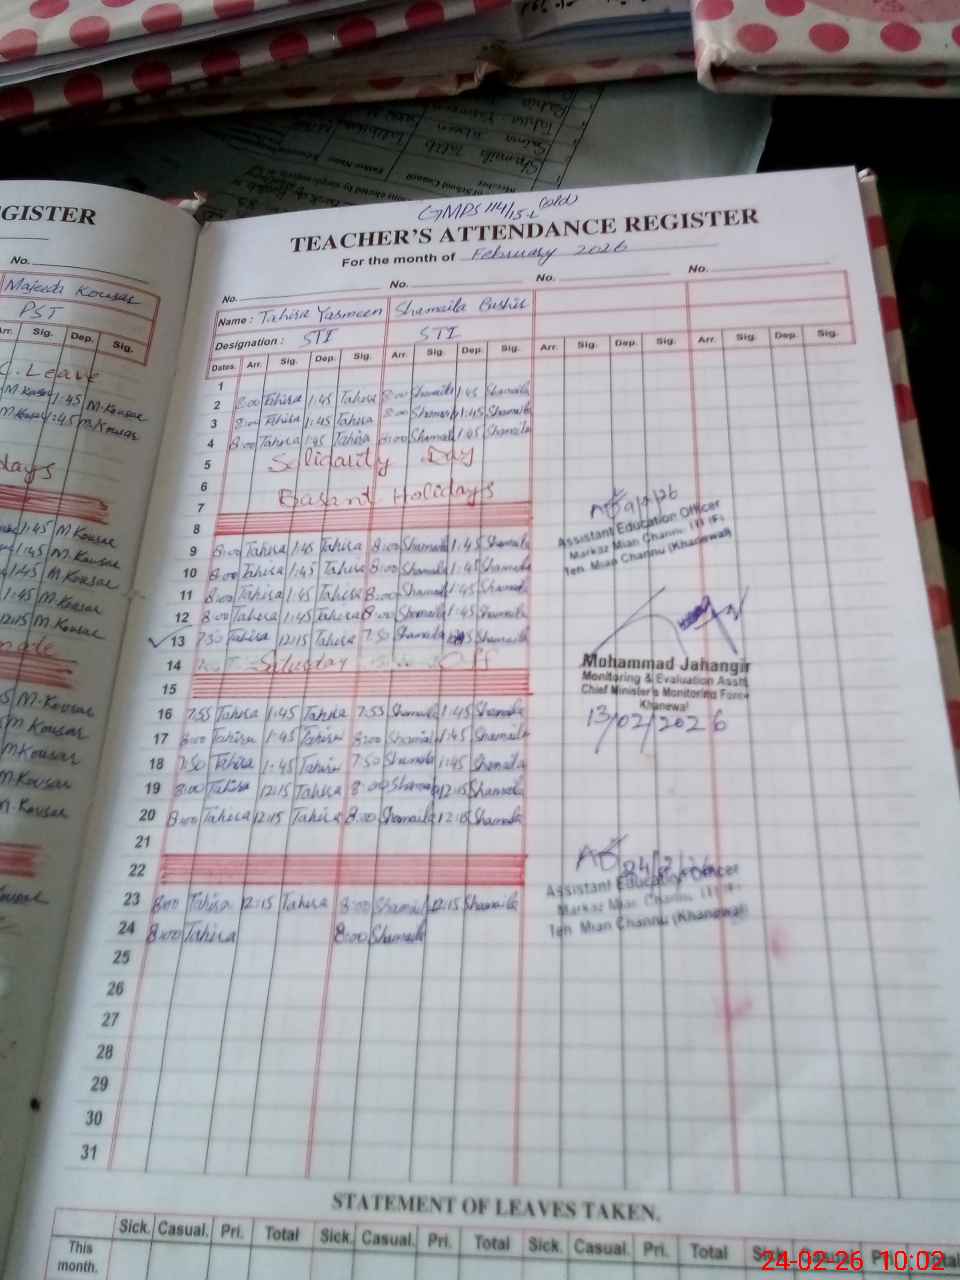 GMPS 114/15-L (old)
TEACHER'S ATTENDANCE REGISTER
For the month of February 2026
No. No. No. No.
Name : Tahira Yasmeen Shamaila Bashir
Designation : STI STI
Dates. Arr. Sig. Dep. Sig. Arr. Sig. Dep. Sig. Arr. Sig. Dep. Sig. Arr. Sig. Dep. Sig.
1
2 8:00 Tahira 1:45 Tahira 8:00 Shamaila 1:45 Shamaila
3 8:00 Tahira 1:45 Tahira 8:00 Shamaila 1:45 Shamaila
4 8:00 Tahira 1:45 Tahira 8:00 Shamaila 1:45 Shamaila
5 Solidarity Day
6
7 Basant Holidays
8
9 8:00 Tahira 1:45 Tahira 8:00 Shamaila 1:45 Shamaila
10 8:00 Tahira 1:45 Tahira 8:00 Shamaila 1:45 Shamaila
11 8:00 Tahira 1:45 Tahira 8:00 Shamaila 1:45 Shamaila
12 8:00 Tahira 1:45 Tahira 8:00 Shamaila 1:45 Shamaila
13 7:50 Tahira 12:15 Tahira 7:50 Shamaila Shamaila
14 Saturday Off
15
16 7:55 Tahira 1:45 Tahira 7:53 Shamaila 1:45 Shamaila
17 8:00 Tahira 1:45 Tahira 8:00 Shamaila 1:45 Shamaila
18 7:50 Tahira 1:45 Tahira 7:50 Shamaila 1:45 Shamaila
19 8:00 Tahira 12:15 Tahira 8:00 Shamaila 12:15 Shamaila
20 8:00 Tahira 12:15 Tahira 8:00 Shamaila 12:15 Shamaila
21
22
23 8:00 Tahira 12:15 Tahira 8:00 Shamaila 12:15 Shamaila
24 8:00 Tahira 8:00 Shamaila
25
26
27
28
29
30
31
9/2/26
Assistant Education Officer
Markaz Mian Channu
Teh. Mian Channu (Khanewal)
Mohammad Jahangir
Monitoring & Evaluation Asstt
Chief Minister's Monitoring Force
Khanewal
13/02/2026
Assistant Education Officer
Markaz Mian Channu
Teh. Mian Channu (Khanewal)
STATEMENT OF LEAVES TAKEN.
Sick. Casual. Pri. Total Sick. Casual. Pri. Total Sick. Casual. Pri. Total Sick. Casual. Pri. Total
This
month.
24-02-26 10:02
GISTER
No.
Majeeda Kousar
PST
Arr. Sig. Dep. Sig.
C. Leave
M. Kousar 1:45 M. Kousar
M. Kousar 1:45 M. Kousar
days
1:45 M Kousar
1:45 M. Kousar
1:45 M. Kousar
1:45 M. Kousar
12:15 M. Kousar
M. Kousar
M. Kousar
M Kousar
M. Kousar
M. Kousar
Kousar